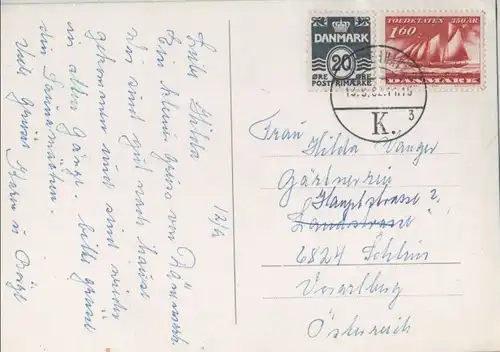 12/6
Liebe Hilda
Ein kleinen Gruss von Dänemark
Wir sind gut nach hause
gekommen und sind wieder
in alten Gänge. bestle grüsse
den Tannemärten.
Viele Grüsse Karen u Børge
DANMARK
20
ØRE ØRE
POSTFRIMÆRKE
TOLDETATEN 350 ÅR
1.60
DANMARK
K. 3
Frau Hilda Vanger
Gärtnerein
Hauptstrasse 2
Landstrasse
6824 Schlins
Vorarlberg
Österreich